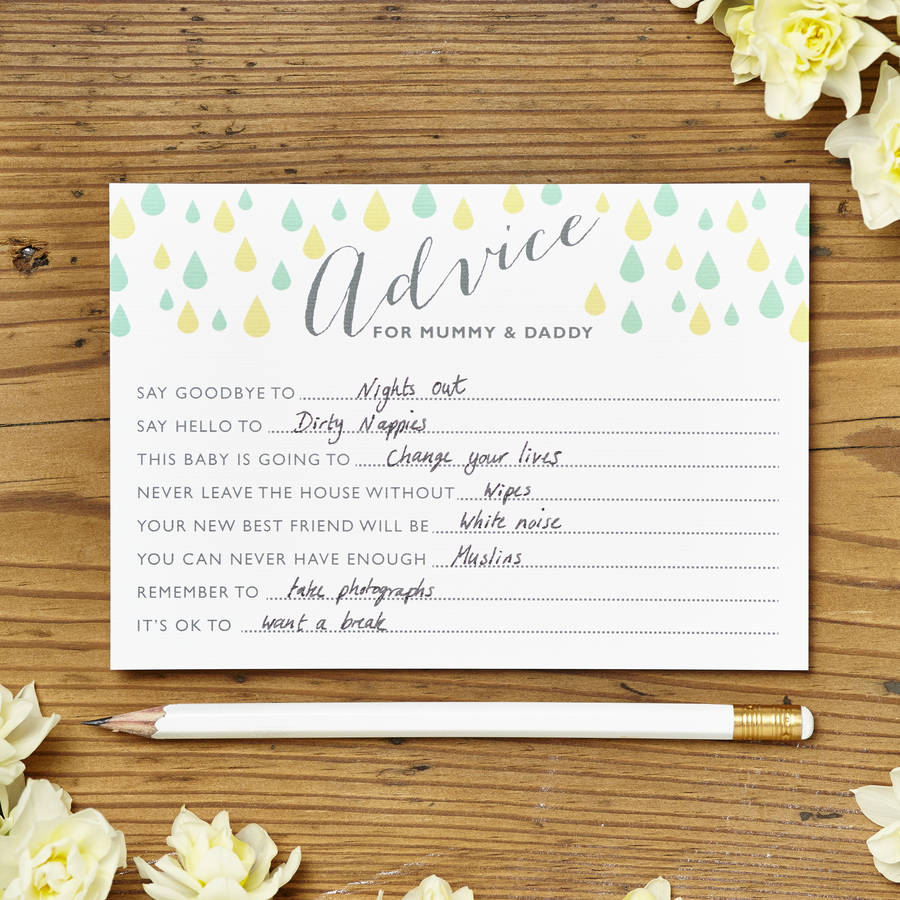 Advice
FOR MUMMY & DADDY
SAY GOODBYE TO Nights out
SAY HELLO TO Dirty Nappies
THIS BABY IS GOING TO Change your lives
NEVER LEAVE THE HOUSE WITHOUT Wipes
YOUR NEW BEST FRIEND WILL BE White noise
YOU CAN NEVER HAVE ENOUGH Muslins
REMEMBER TO take photographs
IT'S OK TO want a break